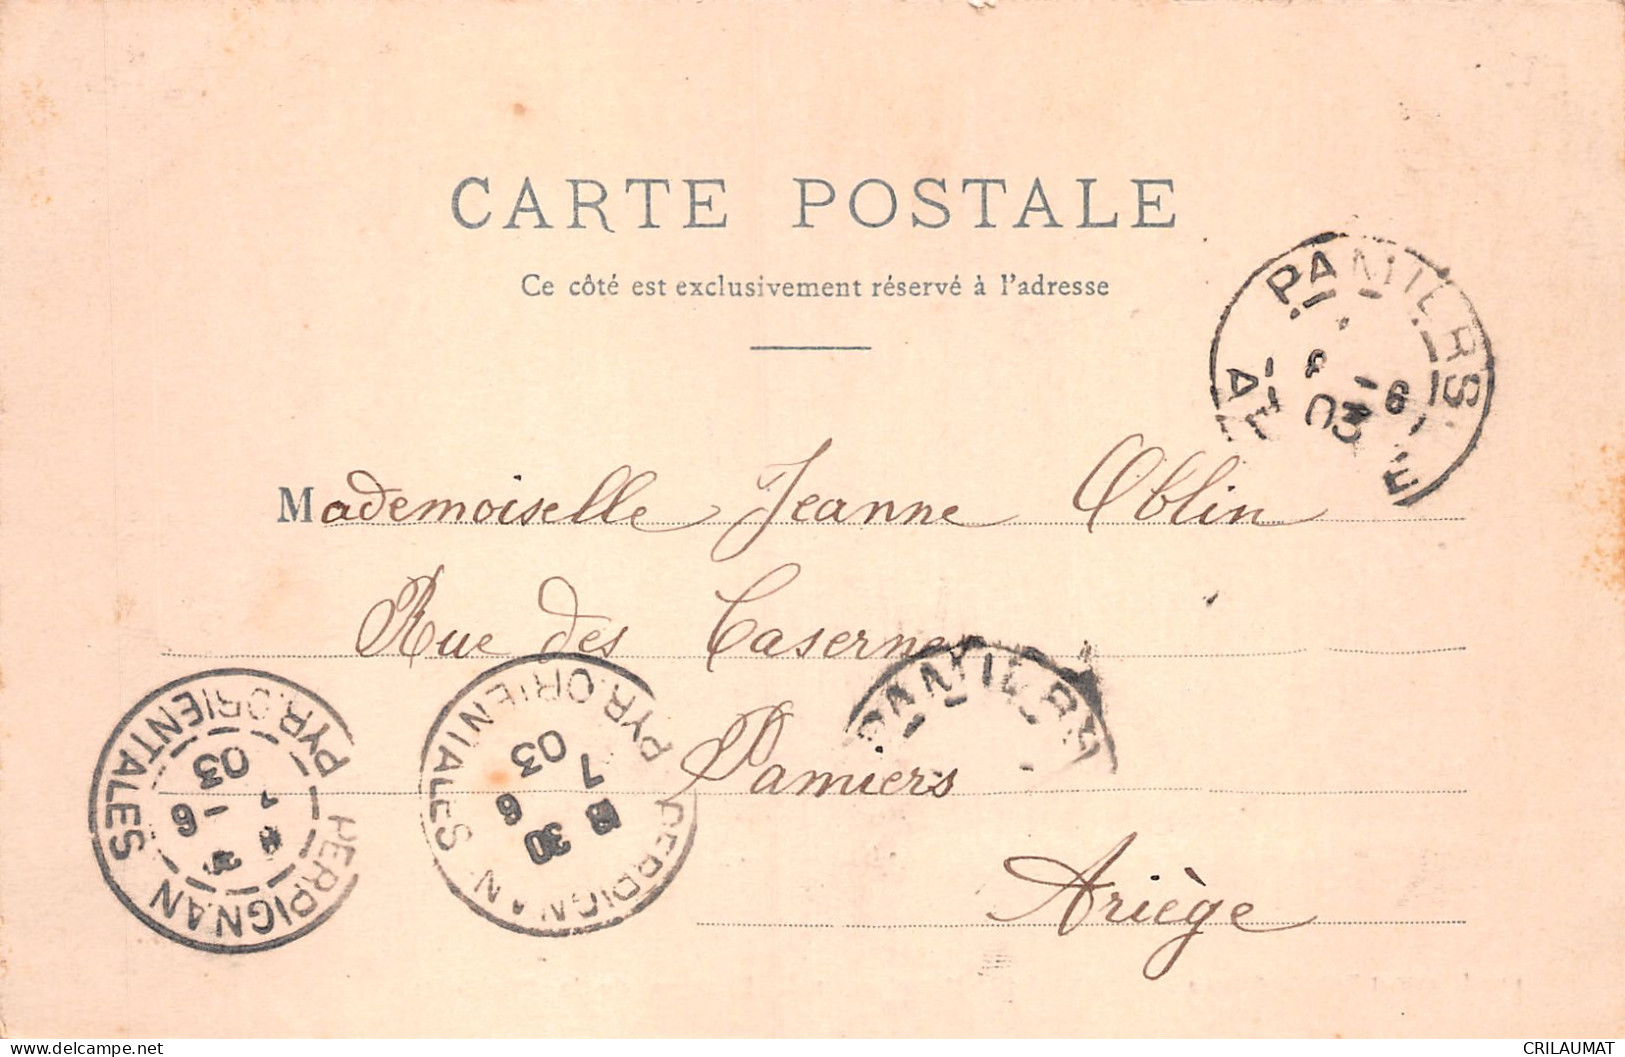 CARTE POSTALE
Ce côté est exclusivement réservé à l'adresse
PAMIERS
03
Mademoiselle Jeanne Oblin
Rue des Casernes
Pamiers
Ariège
PERPIGNAN
PYR. ORIENTALES
6
03
PERPIGNAN
PYR. ORIENTALES
30
6
03
PAMIERS
CRILAUMAT